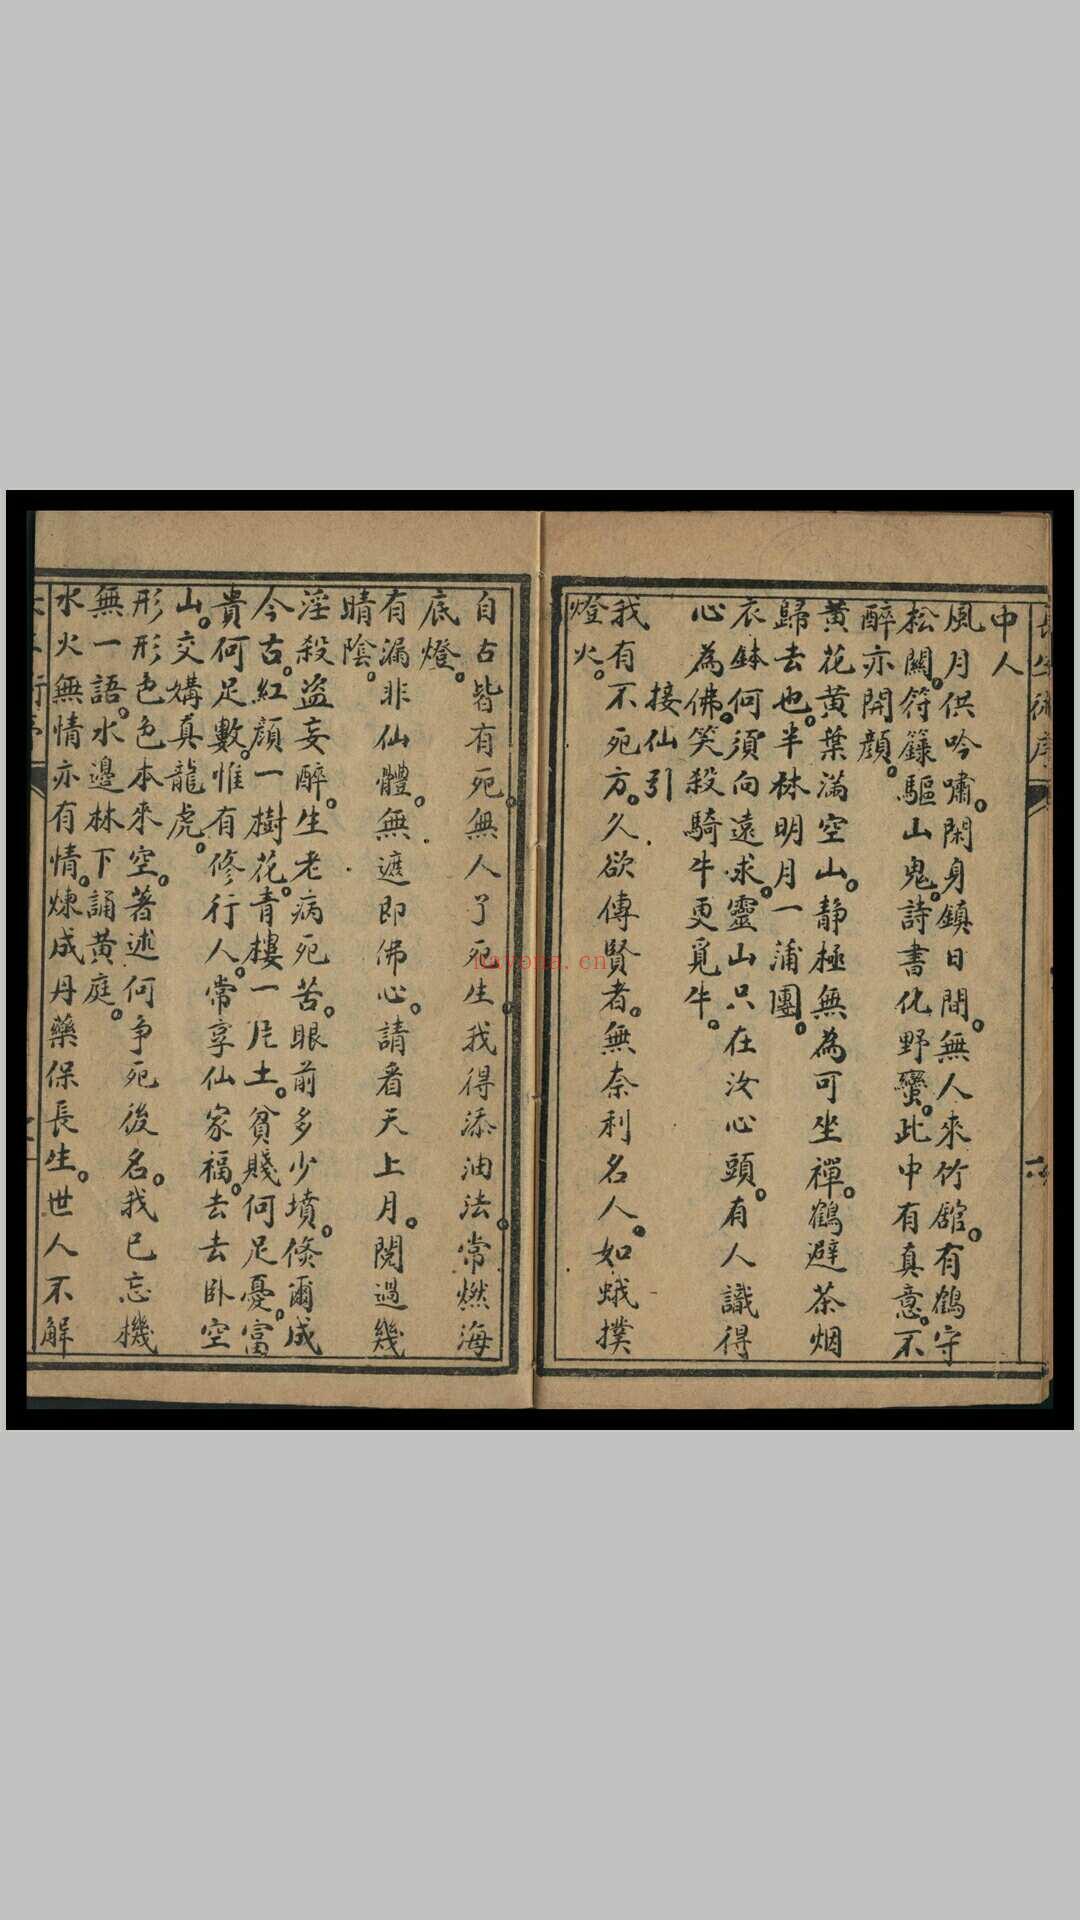 中人
風月供吟嘯閑身鎮日間無人來竹舘有鶴守
松關符籙驅山鬼詩書化野蠻此中有真意不
醉亦開顏
黃花黃葉滿空山靜極無為可坐禪鶴避茶烟
歸去也半林明月一蒲團
衣鉢何須向遠求靈山只在汝心頭有人識得
心為佛笑殺騎牛更覓牛
接仙引
我有不死方久欲傳賢者無奈利名人如蛾撲
燈火
自古皆有死無人了死生我得添油法常燃海
底燈
有漏非仙體無遮即佛心請看天上月閱過幾
晴陰
淫殺盜妄醉生老病死苦眼前多少墳倏爾成
今古紅顏一樹花青樓一瓦土貧賤何足憂富
貴何足數惟有修行人常享仙家福去去臥空
山交媾真龍虎
形形色色本來空著述何爭死後名我已忘機
無一語水邊林下誦黃庭
水火無情亦有情煉成丹藥保長生世人不解
kayona.cn